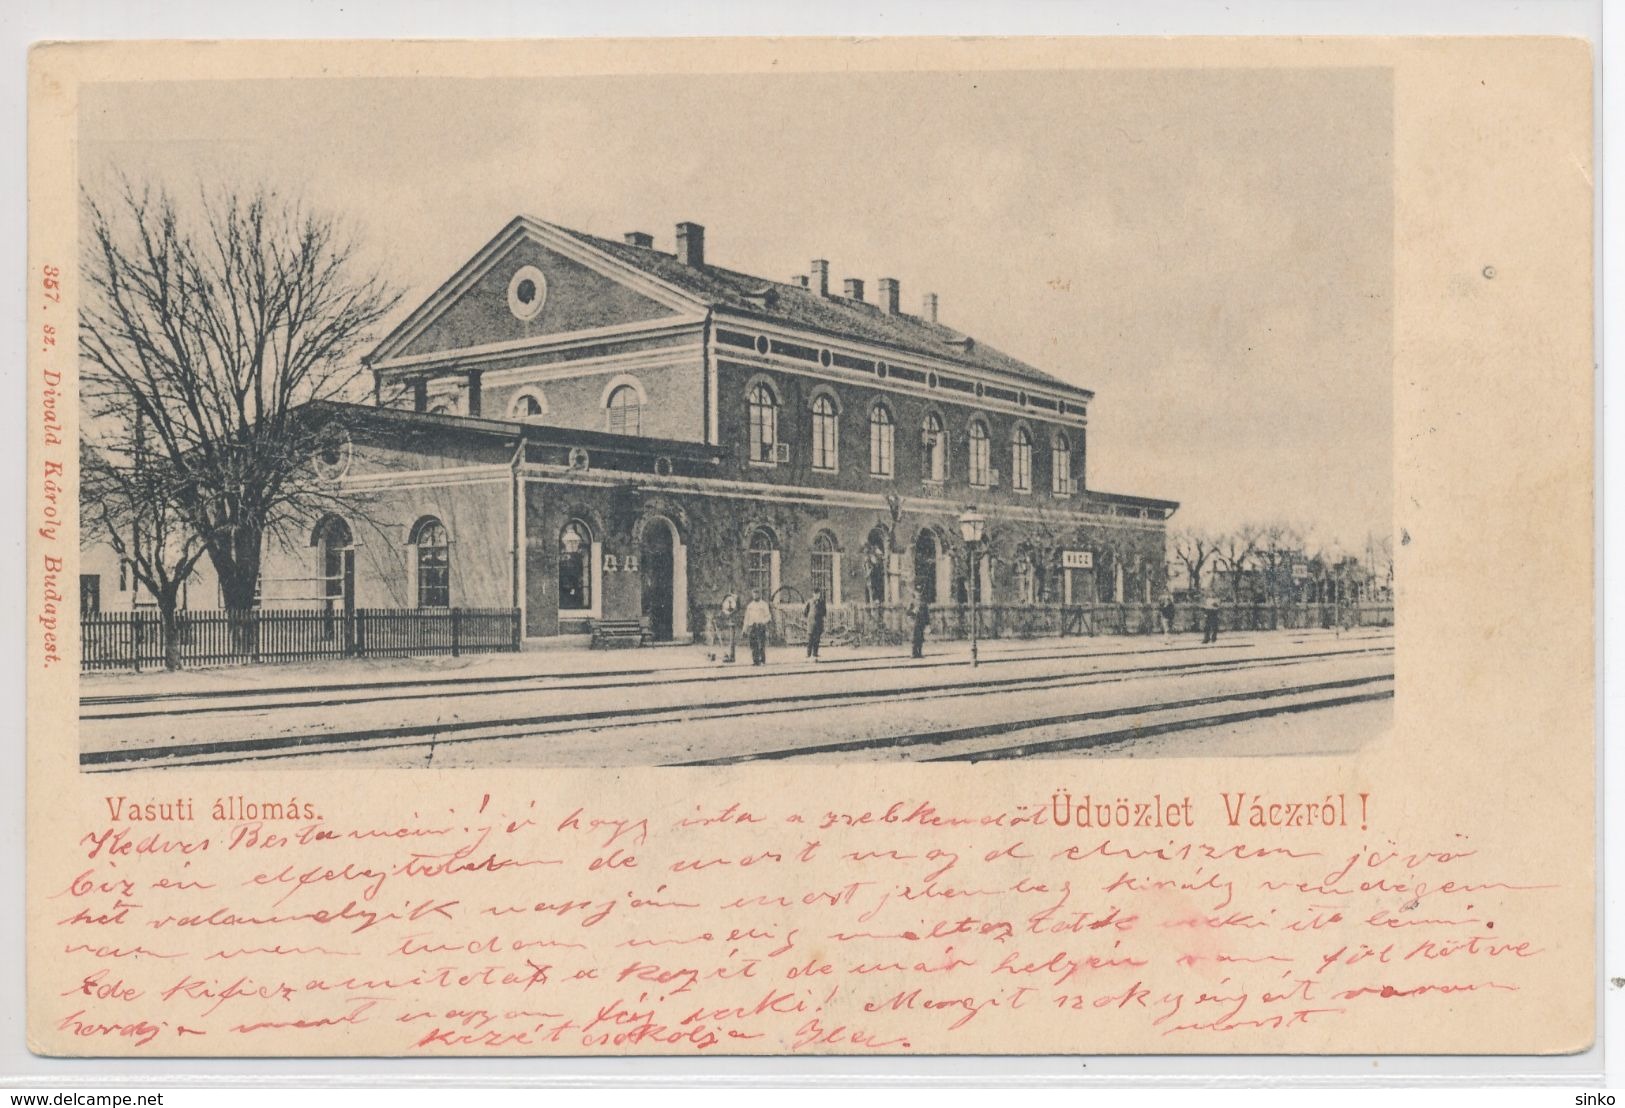 VÁCZ
357. sz. Divald Károly Budapest.
Vasuti állomás.
Üdvözlet Váczról!
Kedves Berta néni! jó hogy irta a zsebkendőt
biz én elfelejtettem de most majd elviszem jövő
hét valamelyik napján most jelenleg király vendégem
van nem tudom meddig méltoztatik neki itt lenni.
Ede kificzamitotta a kezét de már helyén van föl kötve
hordja mert nagyon fáj neki! Margit szoknyáját varom
most
kezét csokolja Ila.
www.delcampe.net
sinko